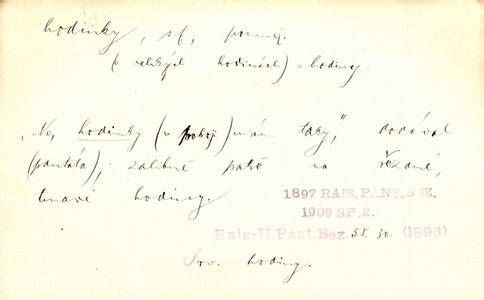 hodinky, sf, pomn.
(o velkých hodinách) = hodiny.
„No, hodinky (v pokoji) mám taky,“ dodával
(pantáta), zálibně patře na řezané,
tmavé hodiny.
1897 RAIS, PANT. BEZ.
1909 SP. 2.
Rais-II Pant. Bez. 55. 30. (1893)
Srv. hodiny.